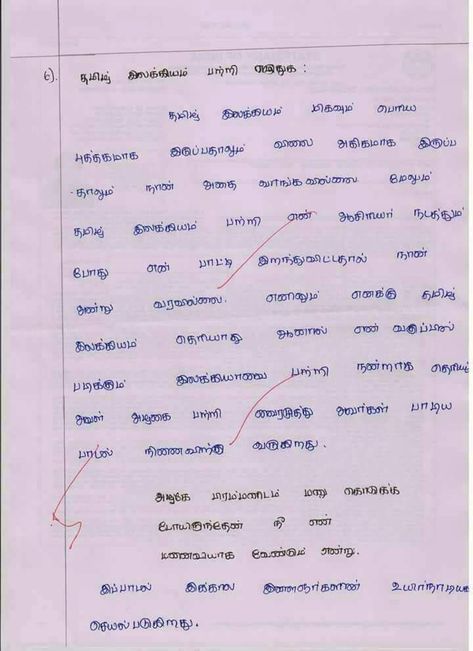 6). தமிழ் இலக்கியம் பற்றி எழுதுக :
தமிழ் இலக்கியம் மிகவும் பெரிய
புத்தகமாக இருப்பதாலும் விலை அதிகமாக இருப்ப
-தாலும் நான் அதை வாங்கவில்லை. மேலும்
தமிழ் இலக்கியம் பற்றி என் ஆசிரியர் நடத்தும்
போது என் பாட்டி இறந்துவிட்டதால் நான்
அன்று வரவில்லை. எனினும் எனக்கு தமிழ்
இலக்கியம் தெரியாது ஆனால் என் வகுப்பில்
படிக்கும் இலக்கியாவை பற்றி நன்றாக தெரியும்
அவள் அழகை பற்றி வைரமுத்து அவர்கள் பாடிய
பாடல் நினைவிற்கு வருகிறது.
அழகே பிரம்மனிடம் மனு கொடுக்க
போயிருந்தேன் நீ என்
மனைவியாக வேண்டும் என்று.
இப்பாடல் இக்கால இளைஞர்களின் உயிர்நாடியாக
செயல்படுகிறது.